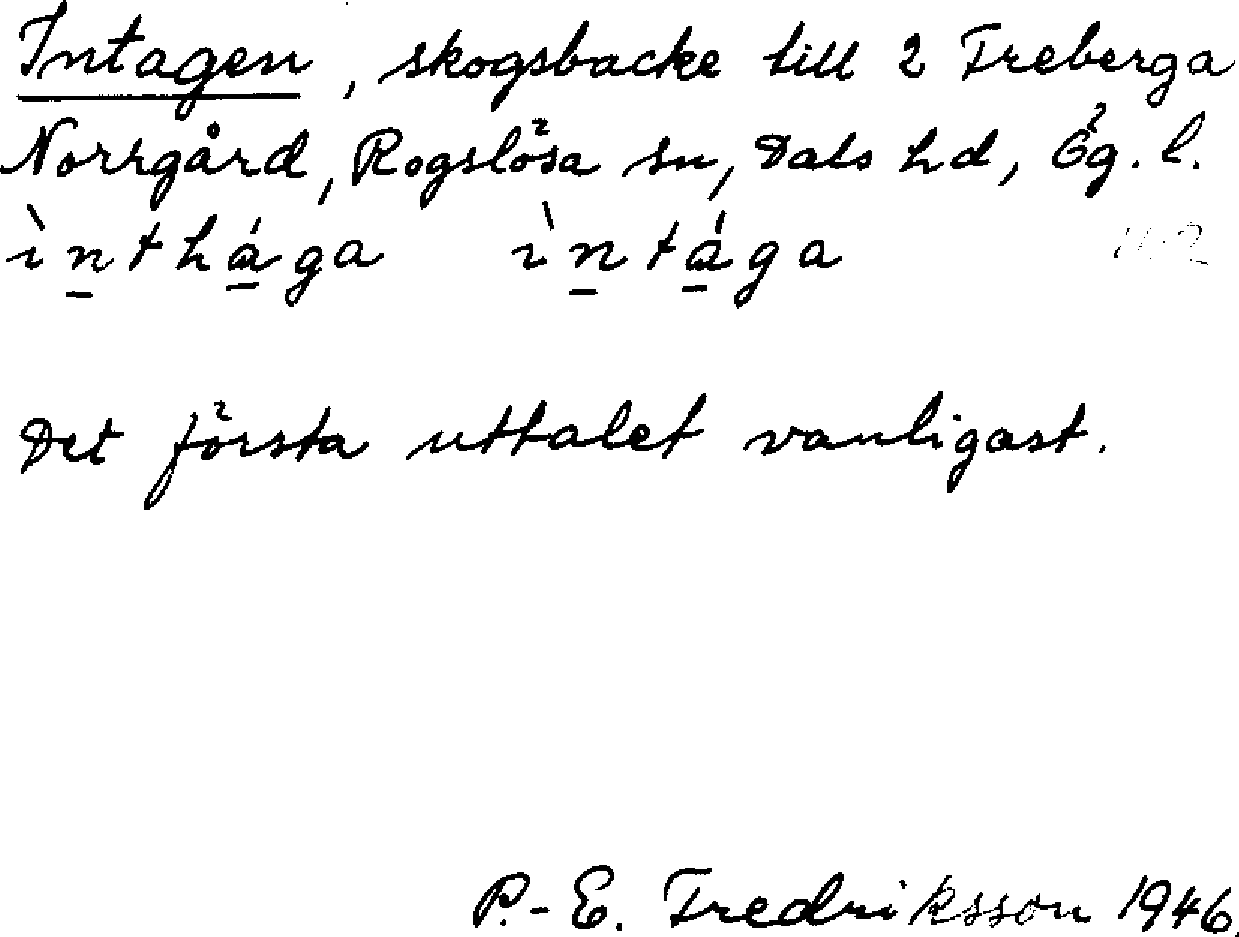 Intagen, skogsbacke till 2 Treberga
Norrgård, Rogslösa sn, Dals hd, Ög. l.
ı̀ṉthá̱ga ı̀ṉtá̱ga
Det första uttalet vanligast.
P.-E. Fredriksson 1946.